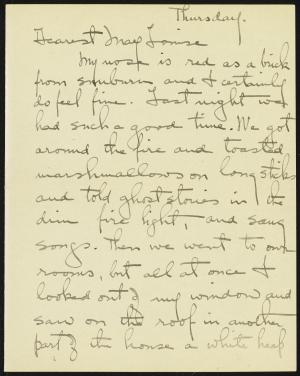 Thursday.
Dearest May Louise
My nose is red as a brick
from sunburn and I certainly
do feel fine. Last night we
had such a good time. We got
around the fire and toasted
marshmallows on long sticks
and told ghost stories in the
dim fire light, and sang
songs. Then we went to our
rooms, but all at once I
looked out of my window and
saw on the roof in another
part of the house a white heap